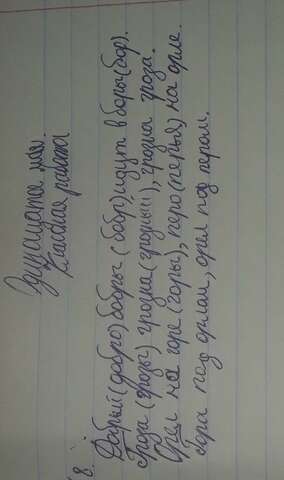 Двадцатое мая.
Классная работа
8.
Добрый (добро) бобры (бобр), идут в боры (бор).
Гроза (грозы) грозна (грозный), грозна гроза.
Орёл на горе (горы), перо (перья) на орле.
Гора под орлом, орел под пером.